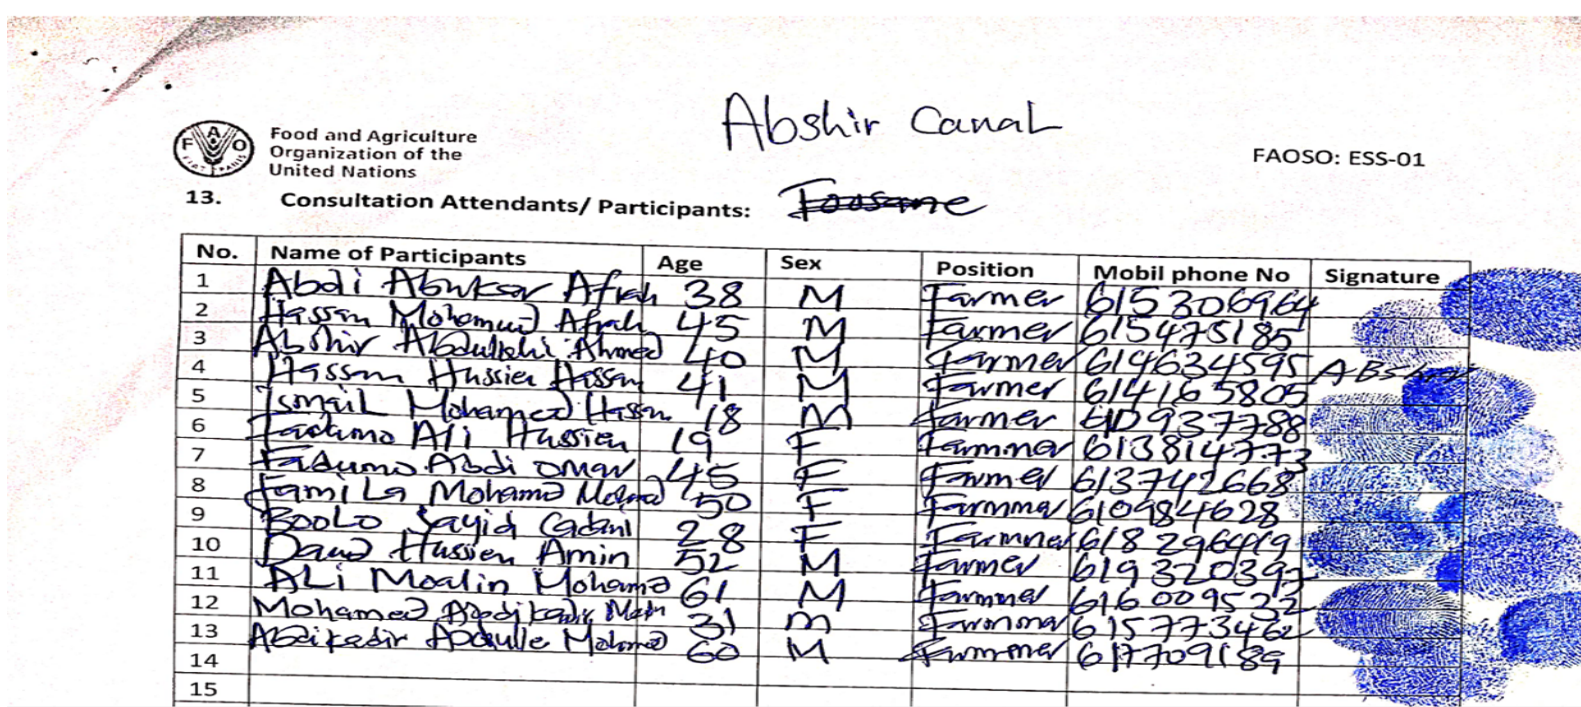 Abshir Canal
Food and Agriculture
Organization of the
United Nations
FAOSO: ESS-01
13. Consultation Attendants/ Participants: Foosame
No. Name of Participants Age Sex Position Mobil phone No Signature
1 Abdi Abukar Afrah 38 M Farmer 615306964
2 Hassan Mohamud Afrah 45 M Farmer 615475185
3 Abshir Abdullahi Ahmed 40 M Farmer 614634595
4 Hassan Hussien Hassan 41 M Farmer 614165805
5 Ismail Mohamed Hasan 18 M Farmer
6 Fadumo Ali Hussien 19 F Farmmer 613814773
7 Fadumo Abdi omar 45 F Farmer 613742668
8 Famila Mohamd 50 F Farmmer 610984628
9 Boolo Sayid 28 F Farmmer 618296419
10 Daud Hussien Amin 52 M Farmer 619320392
11 ALi Moalin Mohamd 61 M Farmmer 616009532
12 Mohamed 31 m Farmmer 615773462
13 Abdikadir Abdulle Mohmd 60 M Farmmer 617709189
14
15